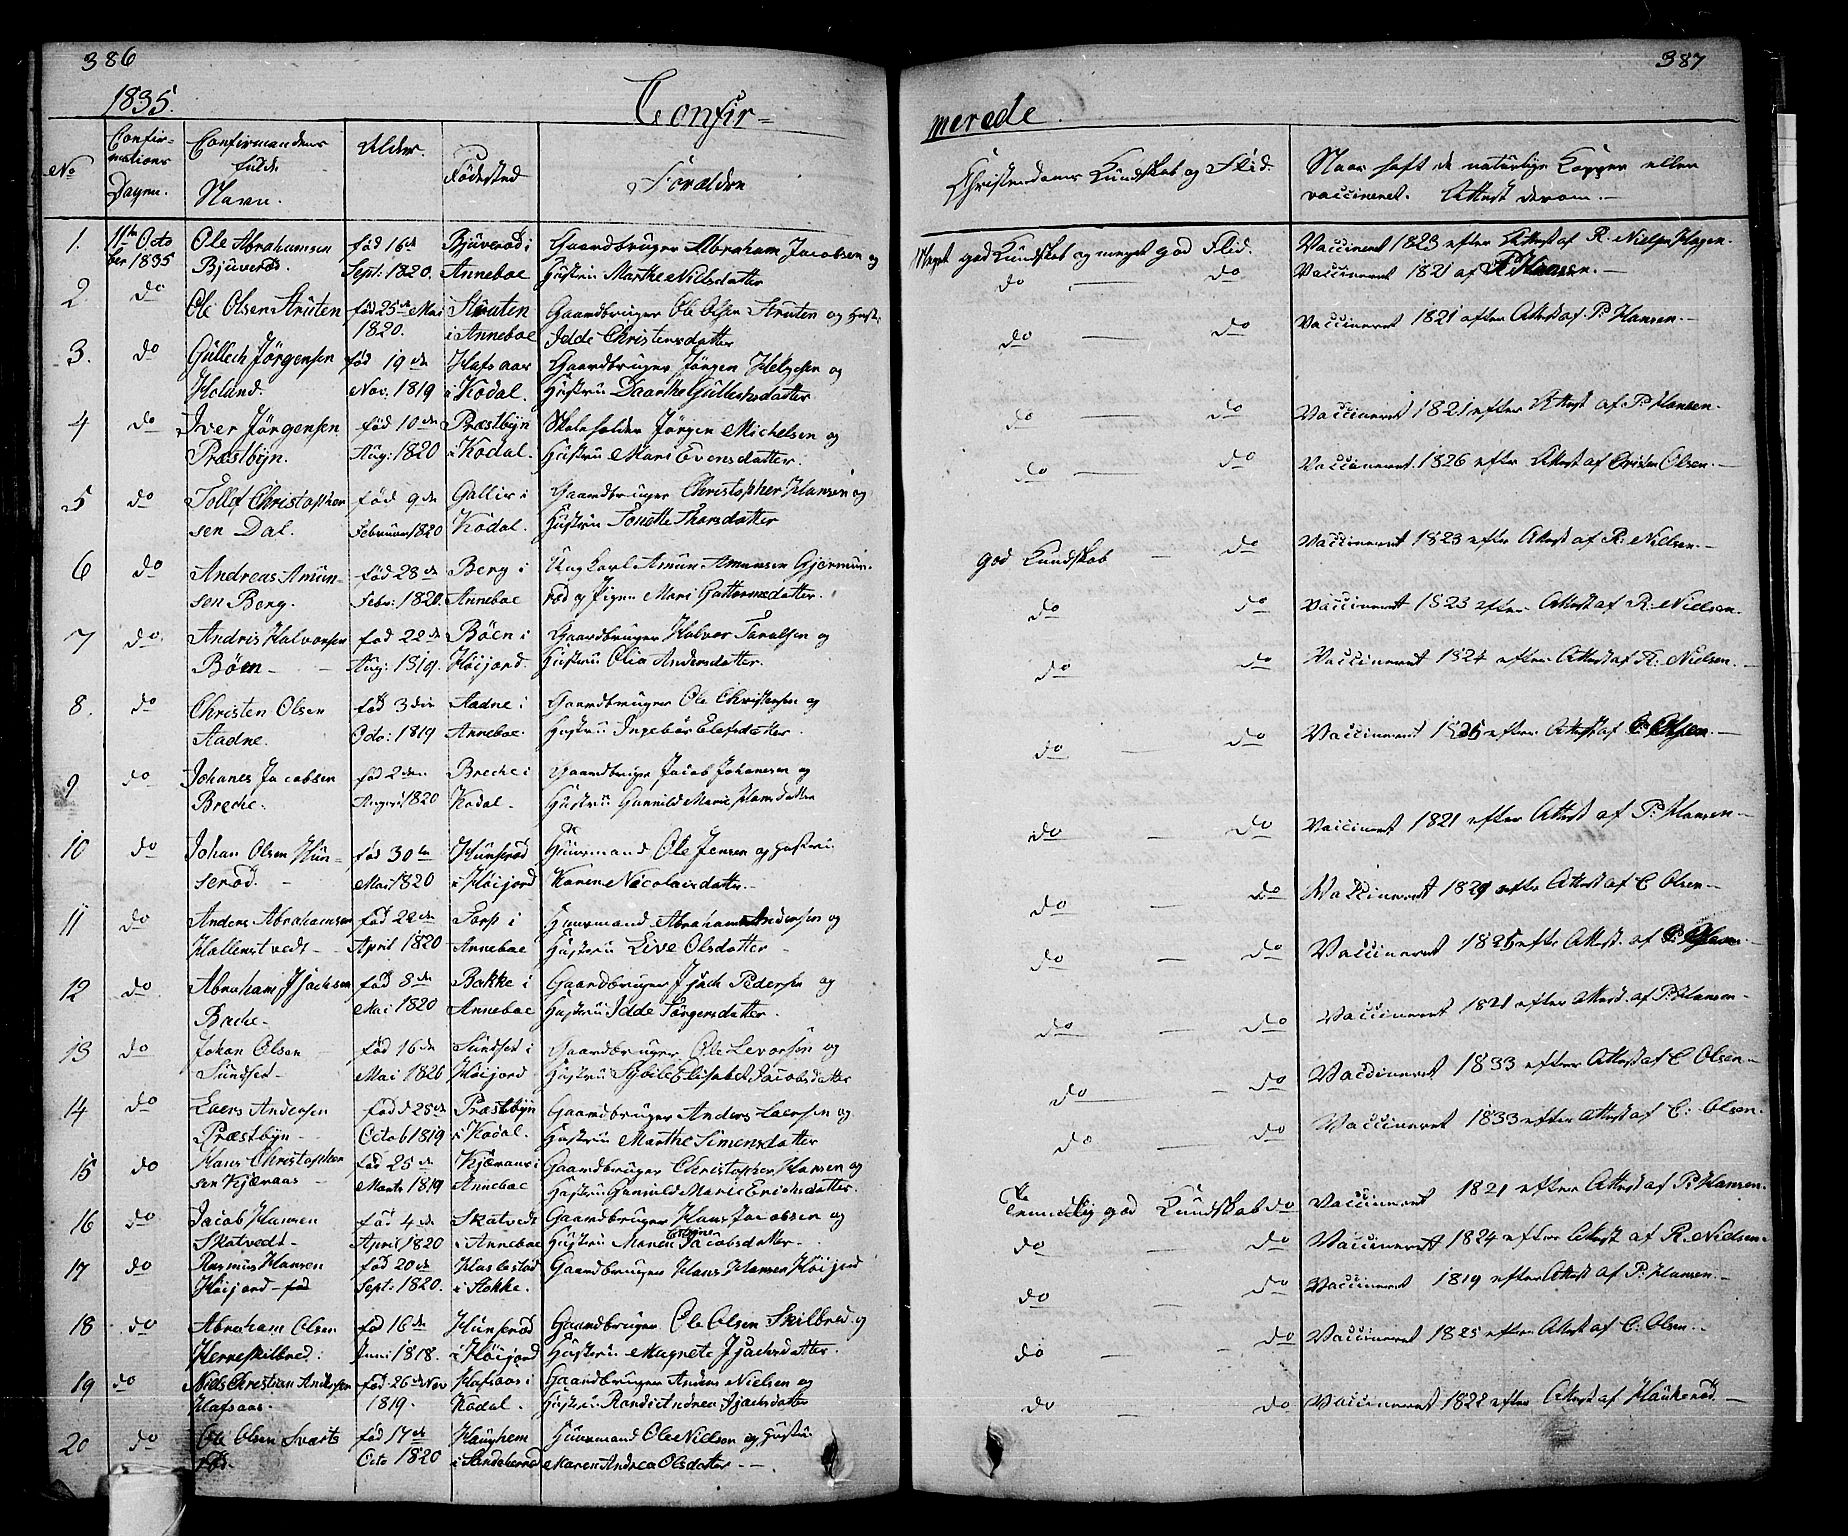 386
1835.
Confir=
No
Confir-
mations
Dagen.
Confirmandens
fulde
Navn.
Alder.
Födested
Forældre
1. 11te Octo Ole Abrahamsen fød 16de Bjuverød i Gaardbruger Abraham Jacobsen og
ber 1835 Bjuverød. Sept: 1820. Anneboe Hustrü Marthe Nilsdatter
2 do Ole Olsen Strüten fød 25de Mai Strüten Gaardbruger Ole Olsen Strüten og Hust:
1820. i Anneboe Idde Christensdatter
3. do Güllech Jörgensen fød 19de Hafsaas Gaardbruger Jörgen Helgesen og
Holand. Nov. 1819 i Kodal. Hüstrü Daarthe Güllichsdatter
4 do Iver Jörgensen fød 10de Præstbÿn Skoleholder Jörgen Michelsen og
Præstbÿn. Aug: 1820 i Kodal. Hüstrü Mari Evensdatter.
5 do Tollef Christopher fød 9de Gallis i Gaardbruger Christopher Hansen og
sen Dal. Februar 1820 Kodal. Hüstrü Tonette Thorsdatter
6 do Andreas Amün- fød 28de Berg i Ungkarl Amün Amünsen Gjermün-
sen Berg. Febr: 1820. Anneboe rød og Pigen Mari Guttormsdatter.
7 do. Andris Halvorsen fød 22de Böen i Gaardbruger Halvor Taralsen og
Böen - Aug: 1819. Höijord. Hüstrü Olia Andersdatter.
8. do Christen Olsen fød 3die Aadne i Gaardbruger Ole Christensen og
Aadne. Octo: 1819 Anneboe. Hüstrü Ingebör Elefsdatter
9 do Johanes Jacobsen fød 2den Breche i Gaardbruger Jacob Johanesen og
Breche. August 1820 Kodal. Hüstrü Gunnild Marie Hansdatter
10 do Johan Olsen Hün- fød 30te Hünserød Hüusmand Ole Jensen og Hüstrü
serød. - Mai 1820 i Höijord Karen Nicolaisdatter -
11 do Anders Abrahamsen fød 22de Torp i Huusmand Abraham Andersen og
Hallenstvedt - April 1820 Anneboe Hüstrü Live Olsdatter -
12 do. Abraham Isachsen fød 8de Bakke i Gaardbruger Isach Pedersen og
Breche - Mai 1820 Anneboe Hüstrü Idde Jörgensdatter.
13 do Johan Olsen fød 16de Sündset i Gaardbruger Ole Levorsen og
Sündset - Mai 1820 Höijord Hüstrü Sybile Elisabet Jacobsdatter
14 do Laers Andersen fød 25de Præstbÿn Gaardbruger Anders Laersen og
Præstbÿn - Octob 1819 i Kodal. Hüstrü Marthe Simensdatter
15 do Hans Christopher fød 25de Kjæraas i Gaardbruger Christopher Hansen og
sen Kjæraas Marts 1819 Anneboe Hüstrü Gunnild Marie Erichsdatter.
16 do Jacob Hansen fød 4de Skatvedt Gaardbruger Hans Jacobsen og
Skatvedt - April 1820 i Anneboe Hüstrü Maren Jacobsdatter -
17 do Rasmus Hansen fød 20de Haslestad Gaardbruger Hans Hansen Höijord
Höijord - Sept: 1820. i Stokke.
18 do Abraham Olsen fød 16de Hünserød Gaardbruger Ole Olsen Skilbred og
Herreskilbred. Juni 1818. i Höijord Hüstrü Magnete Isachsdatter.
19 do Niels Christian Andersen fød 26de Nov Hafsaas i Gaardbruger Anders Nielsen og
Hafsaas. 1819. Kodal. Hüstrü Randi Andrea Isachsdatter
20 do Ole Olsen Svarts fød 17de Haughem Huusmand Ole Nielsen og Hüstrü
rød. Octo 1820 i Sandeherred Maren Andrea Olsdatter -
387
merede.
Christendoms Kundskab og Flid.
Naar haft de natürlige Kopper eller
vaccineret. Attest derom. -
Meget god Kundskab og meget god Flid. Vaccineret 1823 efter Attest af R. Nielsen Hagen.
do - do Vaccineret 1821 af P. Hansen. -
do - do Vaccineret 1821 efter Attest af P. Hansen. -
do - do Vaccineret 1821 efter Attest af P. Hansen.
do - do Vaccineret 1826 efter Attest af Cristen Olsen. -
god Kundskab - do Vaccineret 1823 efter Attest af R. Nielsen. -
do do Vaccineret 1823 efter Attest af R. Nielsen.
do do Vaccineret 1824 efter Attest af R. Nielsen. -
do - do Vaccineret 1825 efter Attest af C. Olsen. -
do - do Vaccineret 1821 efter Attest af P. Hansen -
do - do Vaccineret 1829 efter Attest af C Olsen -
do - do Vaccineret 1825 efter Attest af C. Olsen -
do - do Vaccineret 1821 efter Attest af P. Hansen -
do - do Vaccineret 1833 efter Attest af C. Olsen -
do - do Vaccineret 1833 efter Attest af C: Olsen -
Temmelig god Kundskab do Vaccineret 1821 efter Attest af P: Hansen.
do do Vaccineret 1824 efter Attest af R. Nielsen -
do - do Vaccineret 1819 efter Attest af P: Hansen. -
do - do Vaccineret 1825 efter Attest af C: Olsen. -
do - do Vaccineret 1822 efter Attest af Haukerød -